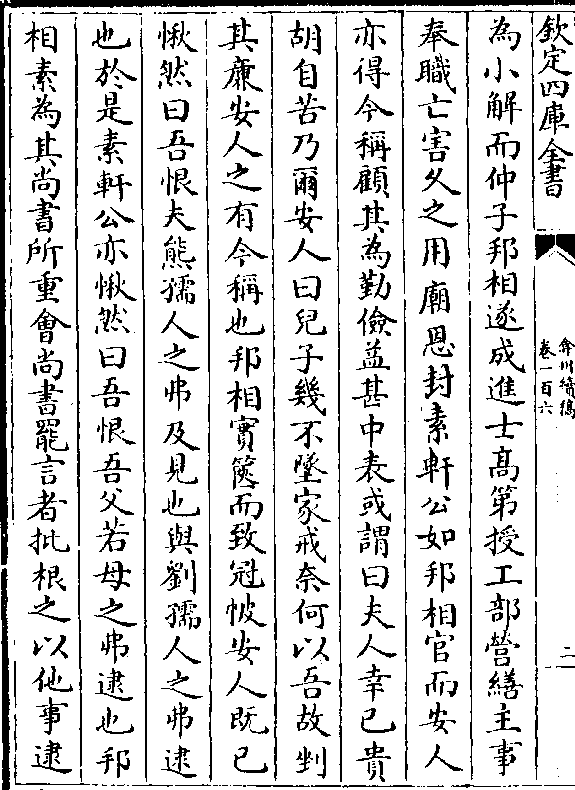 欽定四庫全書
弇州續稿
卷一百六
二
為小解而仲子邦相遂成進士髙第授工部營繕主事
奉職亡害久之用廟恩封素軒公如邦相官而安人
亦得今稱顧其為勤儉益甚中表或謂曰夫人幸已貴
胡自苦乃爾安人曰兒子幾不墜家戒奈何以吾故剉
其廉安人之有今稱也邦相實篋而致冠帔安人既已
愀然曰吾恨夫熊孺人之弗及見也與劉孺人之弗逮
也於是素軒公亦愀然曰吾恨吾父若母之弗逮也邦
相素為其尚書所重會尚書罷言者批根之以他事逮